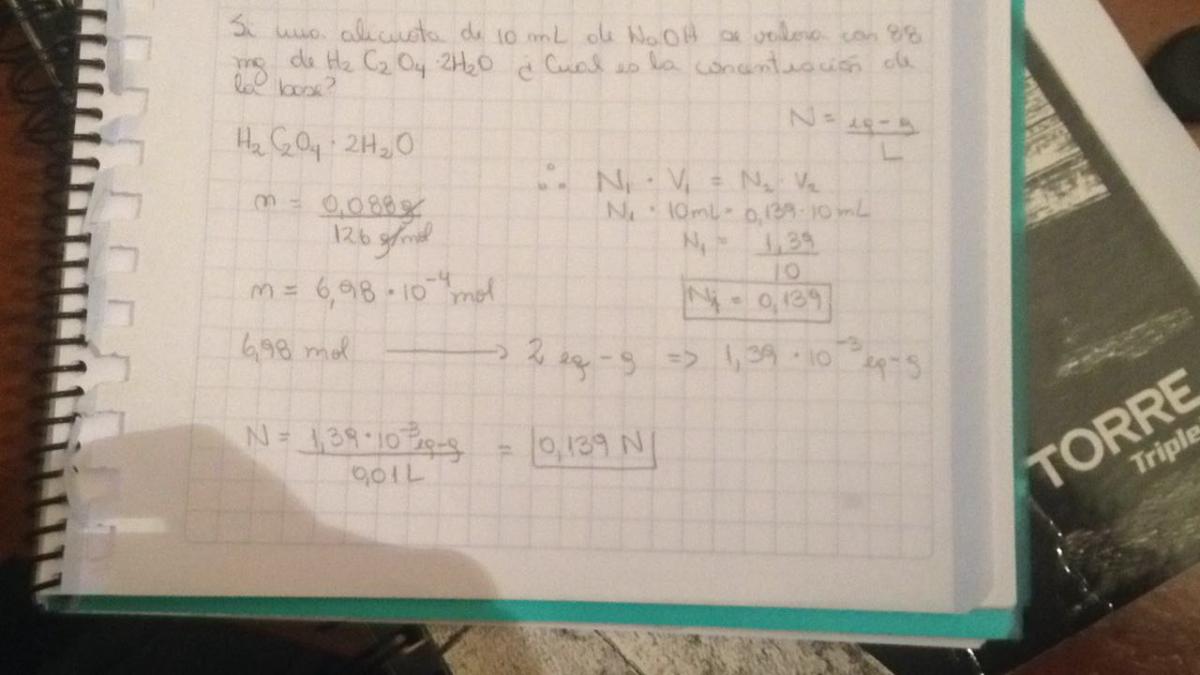 Si una alicuota de 10 mL de NaOH se valora con 88
mg de H2 C2 O4 · 2H2O ¿ Cual es la concentración de
la base?
N = eq-g / L
H2 C2O4 · 2H2O
∴ N1 · V1 = N2 · V2
n = 0,088g / 126 g/mol
N1 · 10mL = 0,139 · 10mL
N1 = 1,39 / 10
n = 6,98 · 10^-4 mol
N1 = 0,139
6,98 mol → 2 eq-g => 1,39 · 10^-3 eq-g
N = 1,39 · 10^-3 eq-g / 0,01L = 0,139 N
TORRE
Triple